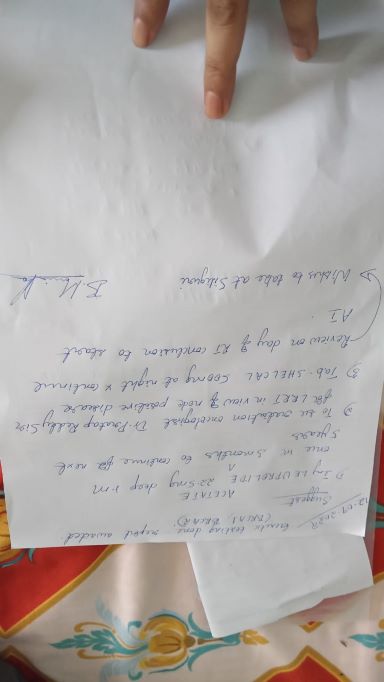 12.09.2022 Genetic testing done, report awaited
(BRCA1, BRCA2)
Suggest
ACETATE
1) Inj LEUPROLIDE ^ 22.5mg deep I.M
once in 3 months to continue for next
5 years
2) To see radiation oncologist Dr. Pratap Reddy Sir
for LRRT in view of node positive disease
3) Tab. SHELCAL 500mg at night x continue
Review on day of RT conclusion to start
AI.
→ Wishes to take at Siliguri